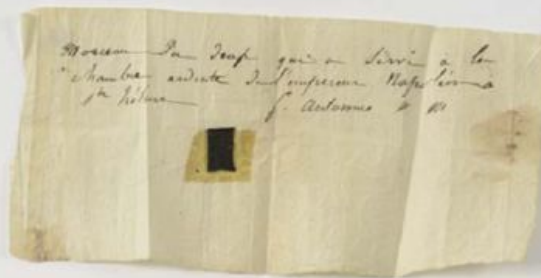 Morceau Du drap qui a servi à la
chambre ardente de l'empereur Napoléon a
Ste hélène f. Antommar